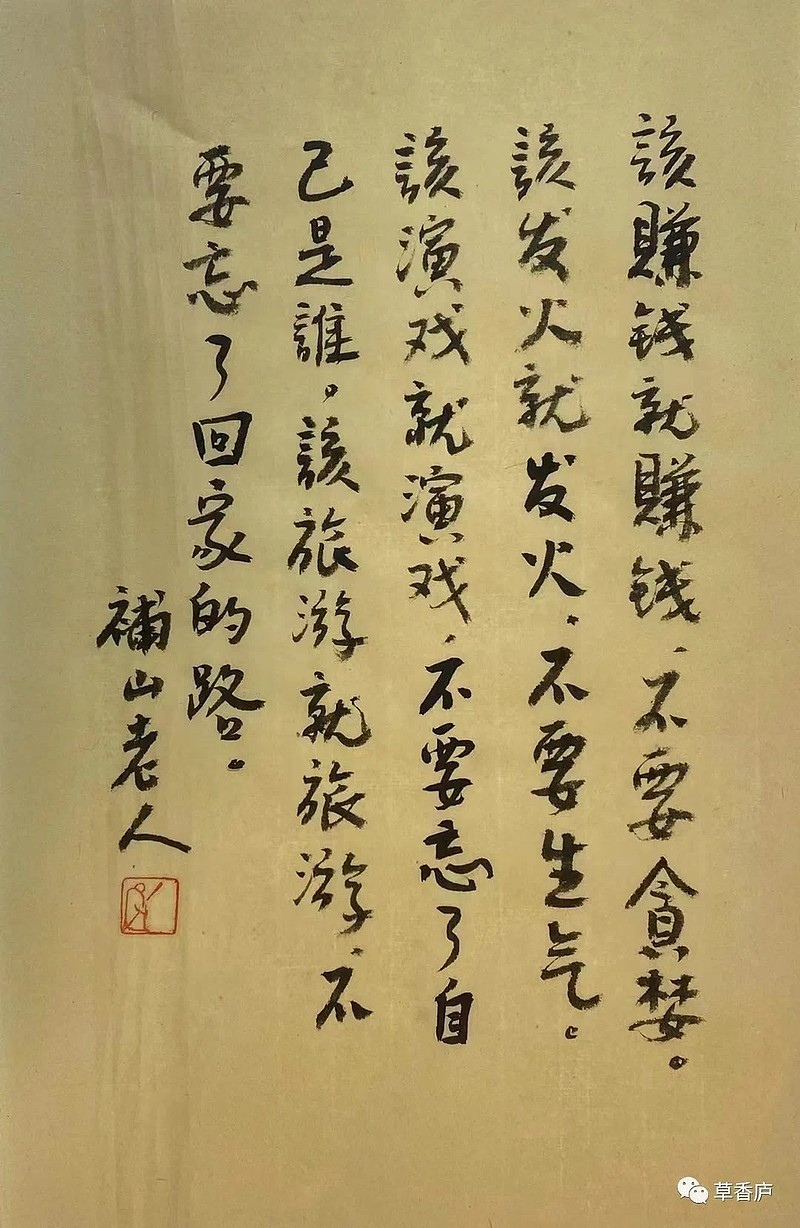 該賺钱就賺钱，不要貪婪。
該发火就发火，不要生气。
該演戏就演戏，不要忘了自
己是誰。該旅游就旅游，不
要忘了回家的路。
補山老人
草香庐